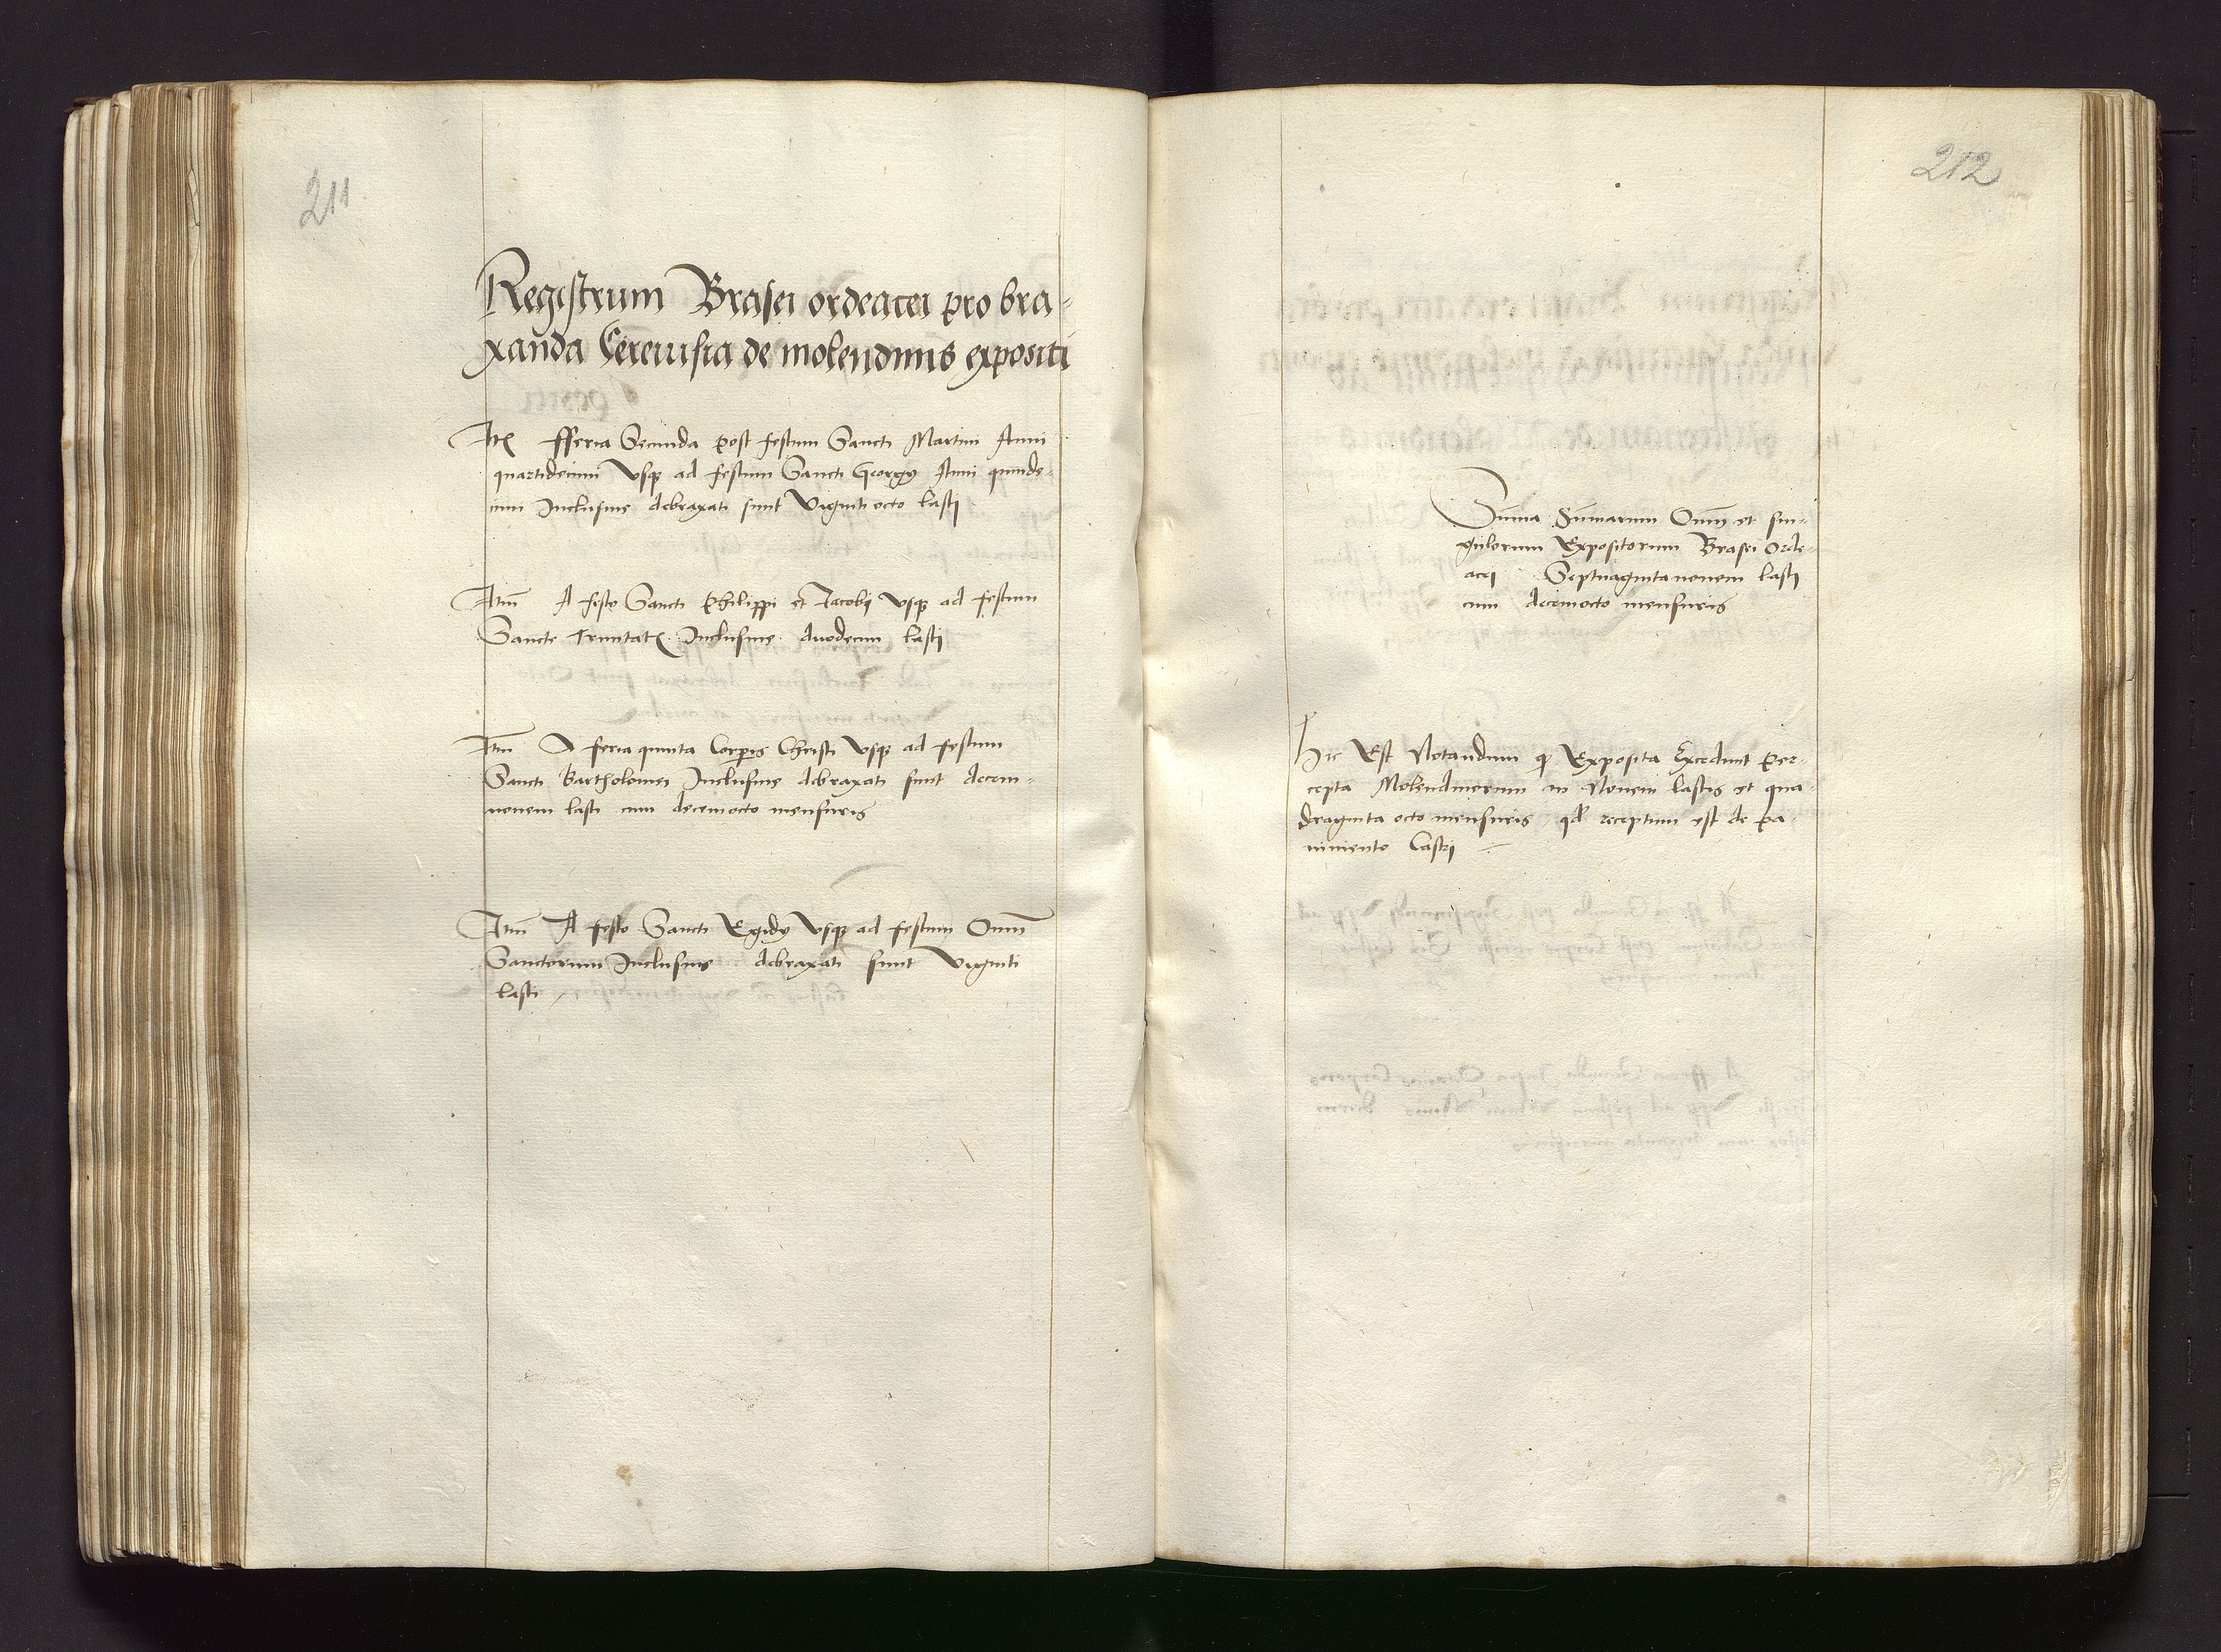 211
Registrum Brasei ordeacei pro bra-
xanda Cerevisia de molendinis expositi
Itē fferia Secunda post festum Sancti Martini Anni
quartidecimi Vsqȝ ad festum Sancti Georgy Anni quinde-
cimi Inclusiue debraxati sunt Viginti octo lasti
Itm̄ A festo Sancti Philippi et Jacobj vsqȝ ad festum
Sancte Trinitatꝭ Inclusiue duodecim lasti
Itm̄ A feria quinta Corꝑis Christi vsqȝ ad festum
Sancti Bartholomei Inclusiue debraxati sunt decem-
novem lasti cum decemocto mensuris
Itm̄ A festo Sancti Egidy vsqȝ ad festum Oīm̄
Sanctorum Inclusiue debraxati sunt Viginti
lasti
212
Sum̄a Sum̄arum Oīm̄ et sin-
gulorum Expositorum Brasei orde-
acej Septuagintanouem lastj
cum decemocto mensuris
Hic Est Notandum ꝙ Exposita Excedunt per-
cepta Molendinorum in Nouem lastis et qua-
draginta octo mensuris, qđ receptum est de pa-
uimento Castrj